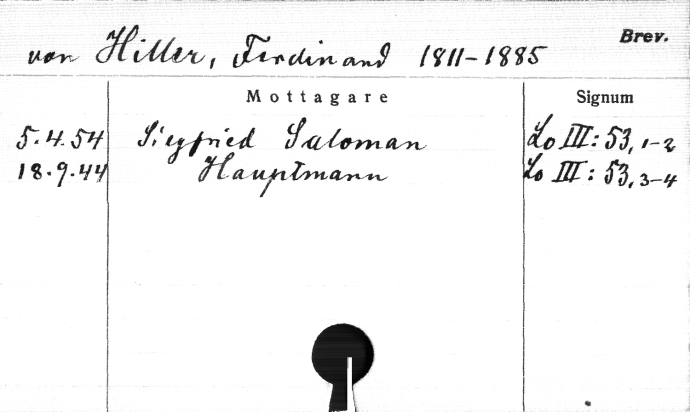 Brev.
von Hiller, Ferdinand 1811-1885
Mottagare Signum
5.4.54 Siegfried Saloman Lo III: 53, 1-2
18.9.44 Hauptmann Lo III: 53, 3-4